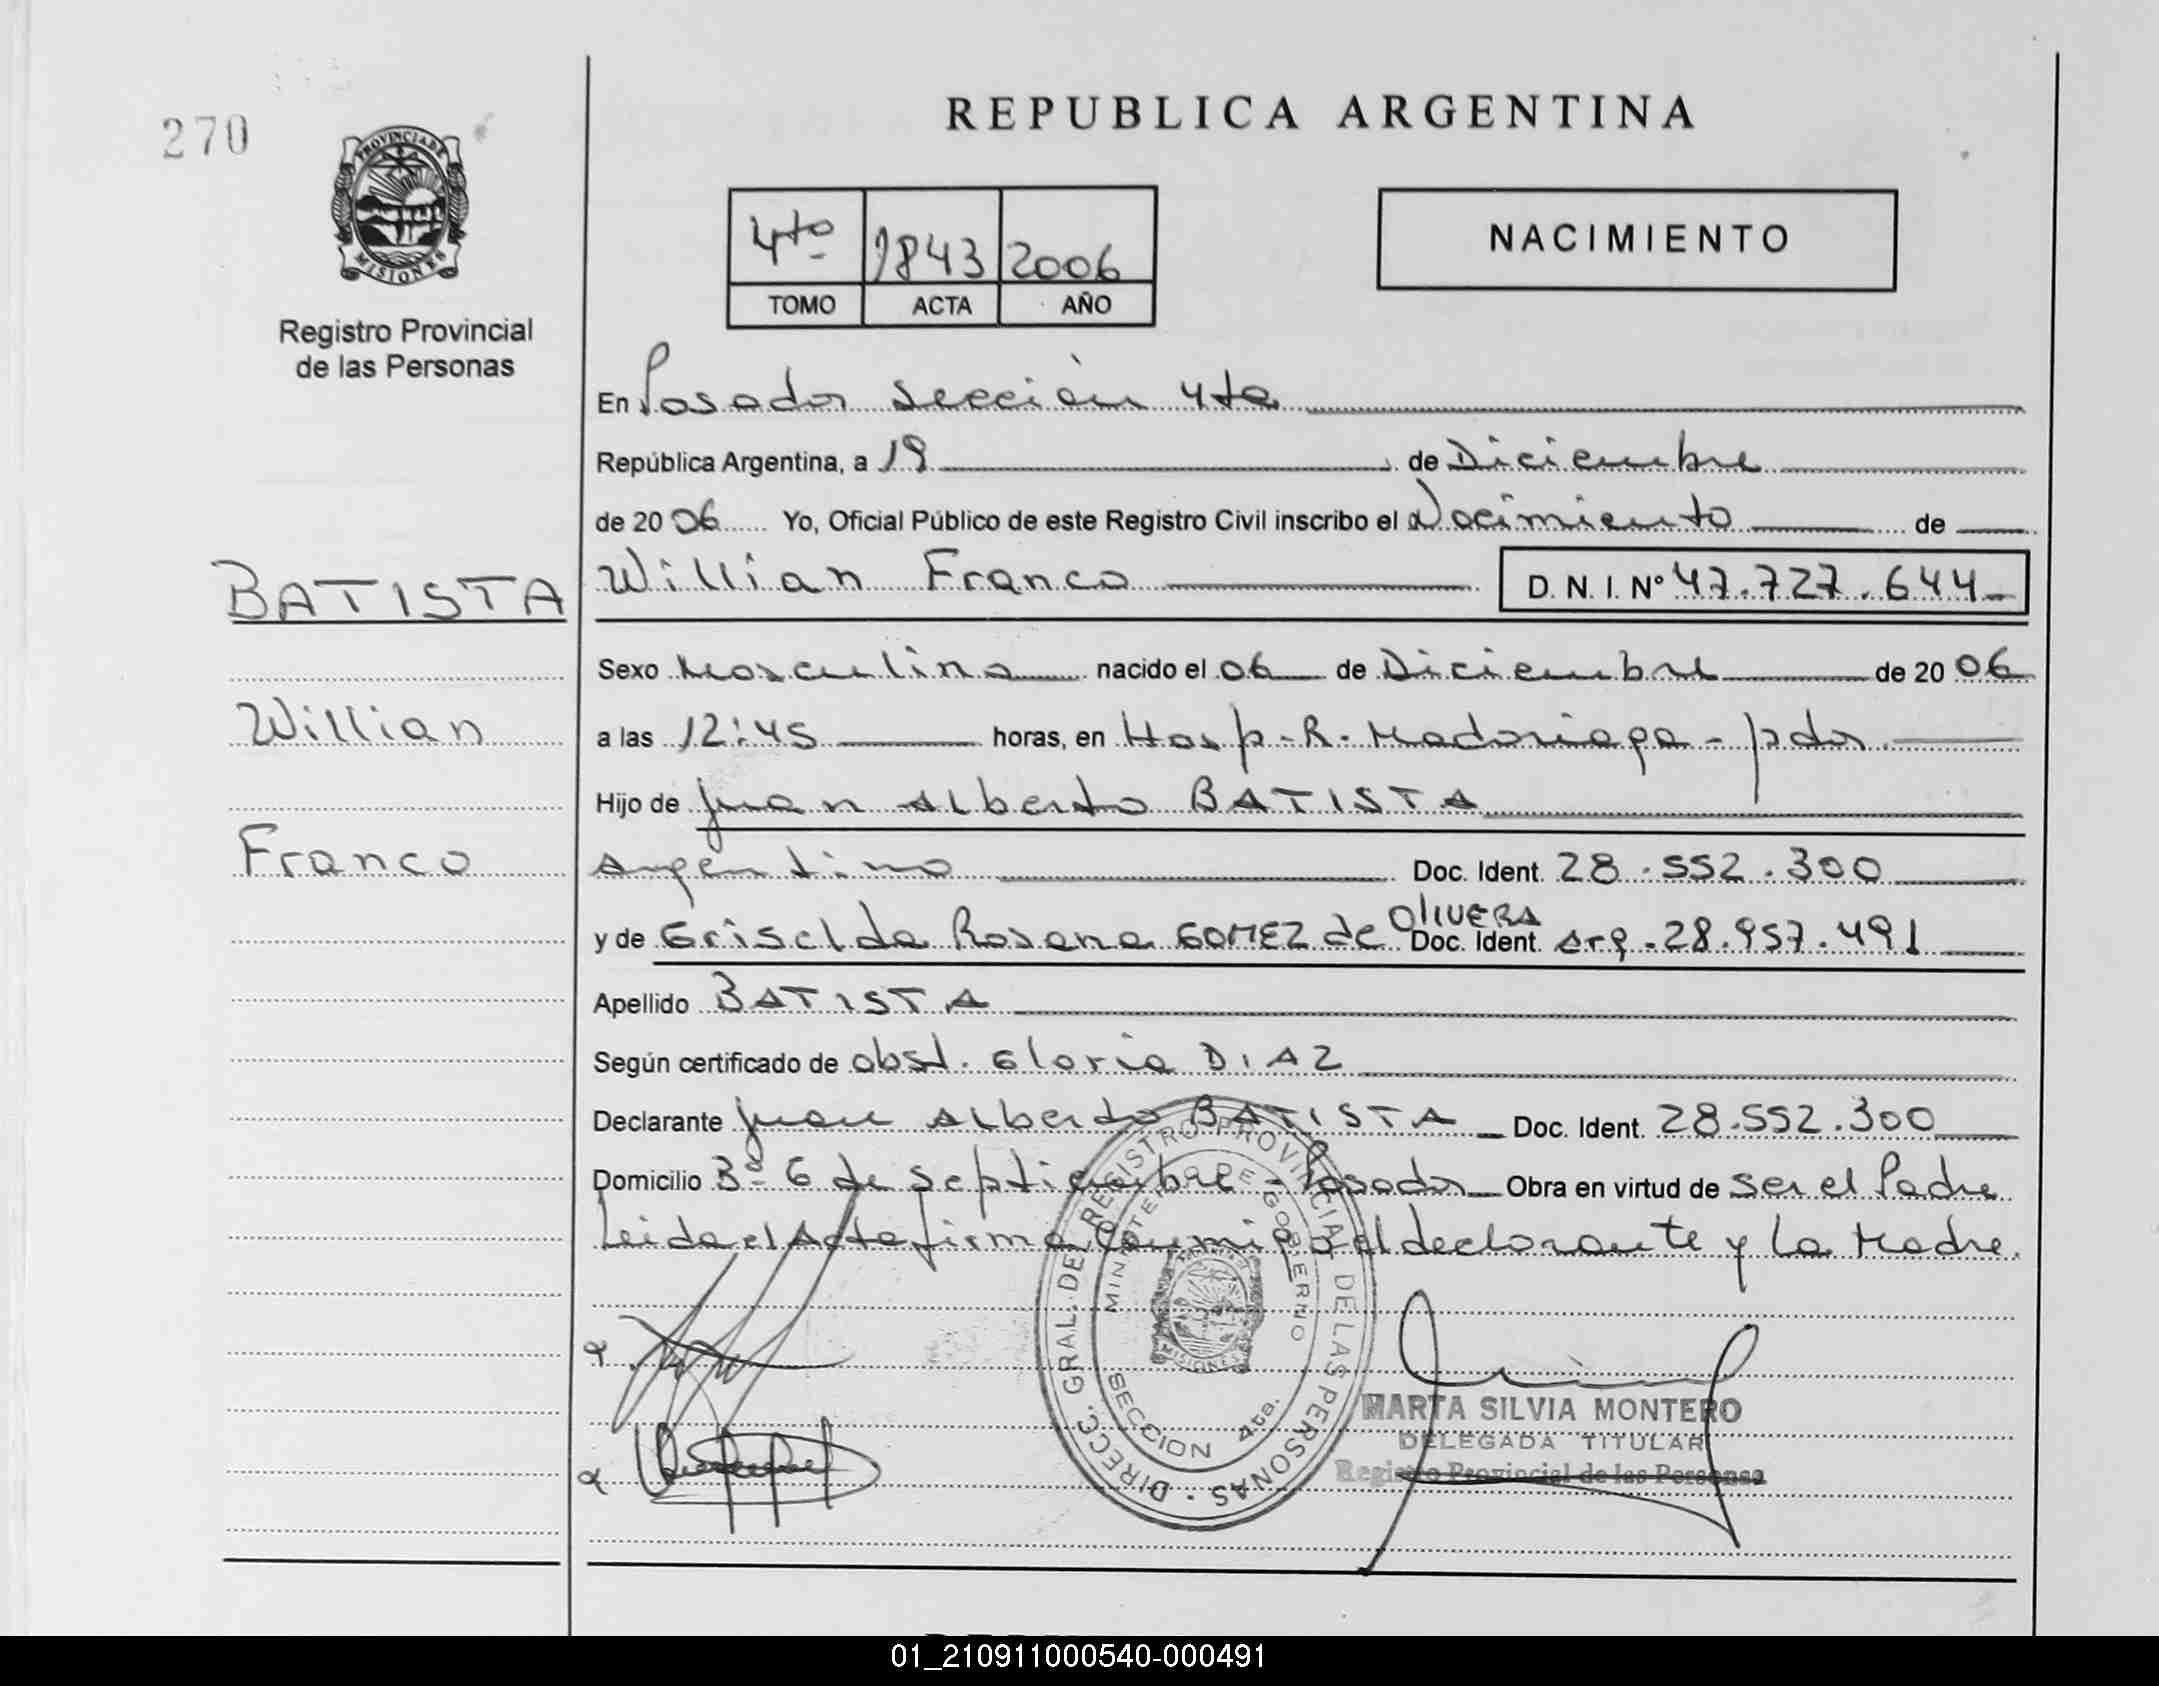 270
PROVINCIA DE
MISIONES
Registro Provincial
de las Personas
REPUBLICA ARGENTINA
4to 1843 2006
TOMO ACTA AÑO
NACIMIENTO
En Posadas sección 4ta
República Argentina, a 19 de Diciembre
de 2006 Yo, Oficial Público de este Registro Civil inscribo el Nacimiento de
BATISTA
Willian Franco D. N. I. Nº 47.727.644
Sexo Masculino nacido el 06 de Diciembre de 2006
Willian
a las 12:45 horas, en Hosp. R. Madariaga - pdas
Hijo de Juan Alberto BATISTA
Franco
Argentino Doc. Ident. 28.552.300
y de Griselda Rosana GOMEZ de OlIVERA Doc. Ident. Arg. 28.957.491
Apellido BATISTA
Según certificado de obst. Gloria DIAZ
Declarante Juan Alberto BATISTA Doc. Ident. 28.552.300
Domicilio Bº 6 de septiembre - Posadas Obra en virtud de ser el Padre
Leida el Acta firma conmigo el declarante y la Madre.
DIRECC. GRAL. DEL REGISTRO PROVINCIAL DE LAS PERSONAS
MINISTERIO DE GOBIERNO
MISIONES
SECCION 4ta.
MARTA SILVIA MONTERO
DELEGADA TITULAR
Registro Provincial de las Personas
01_210911000540-000491